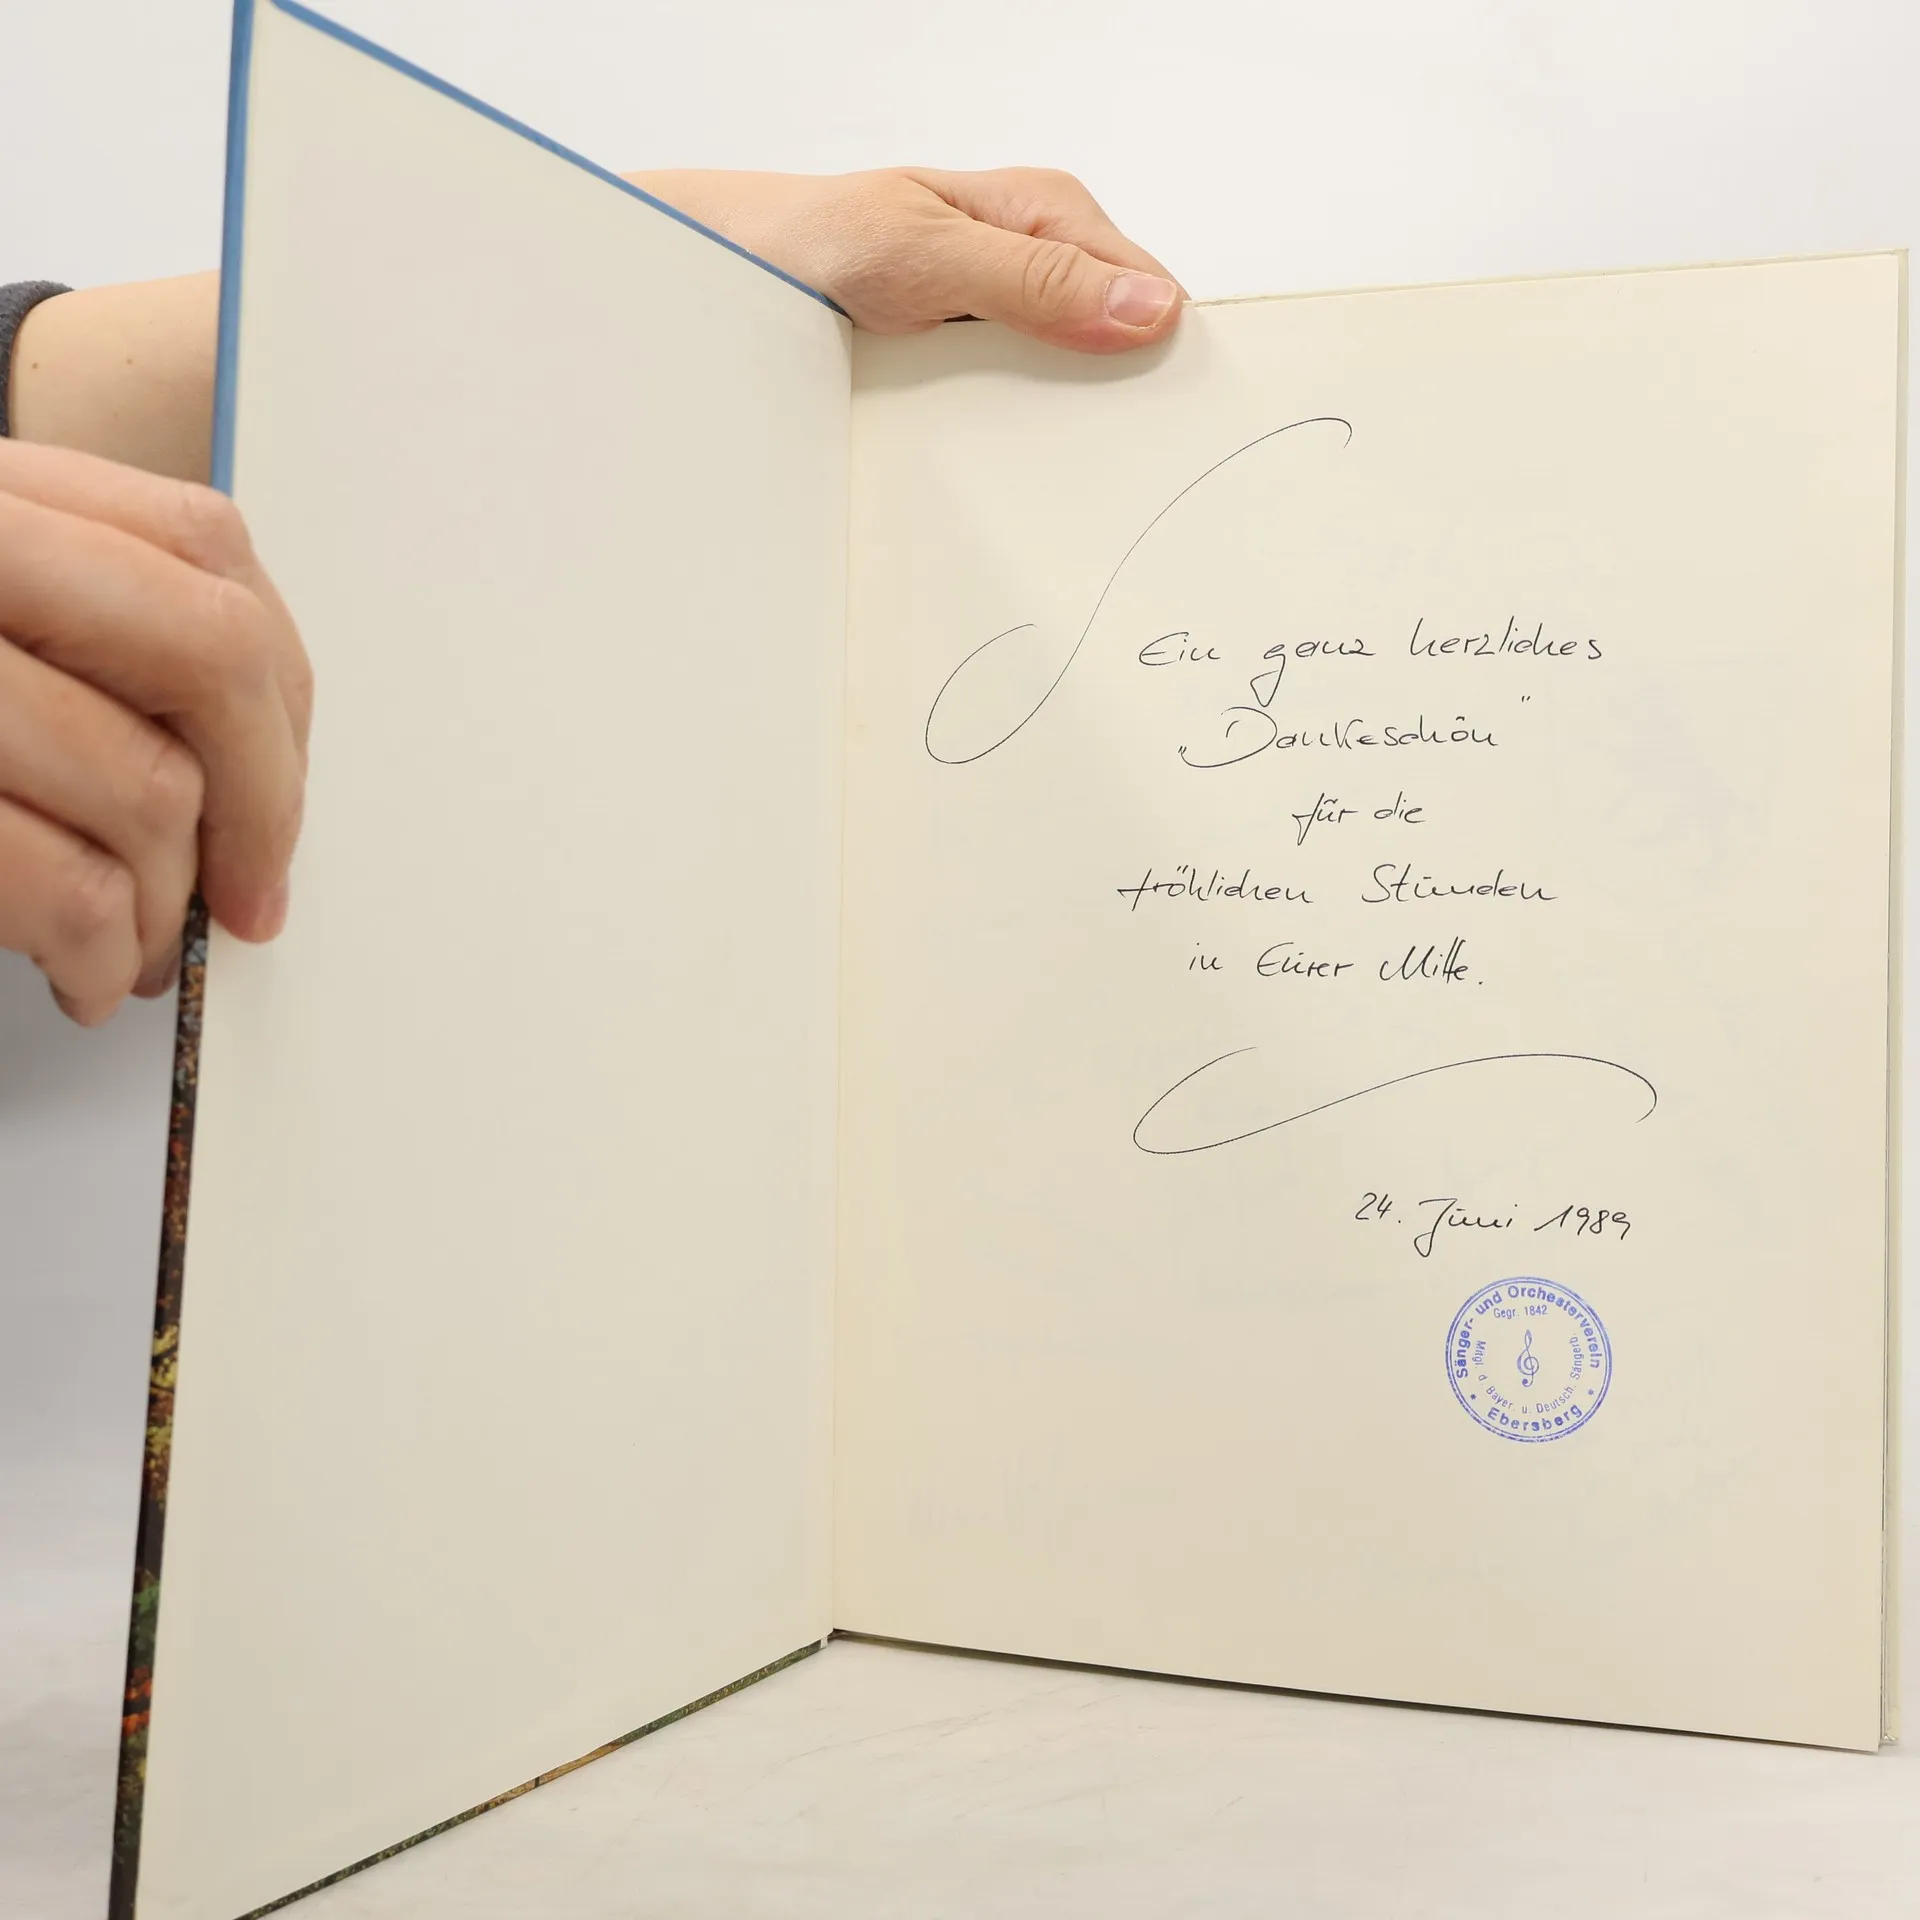 Ein ganz herzliches
„Dankeschön"
für die
fröhlichen Stunden
in Eurer Mitte.
24. Juni 1989
Sänger- und Orchesterverein
Gegr. 1842
Mitgl. d. Bayer. u. Deutsch. Sängerb.
* Ebersberg *